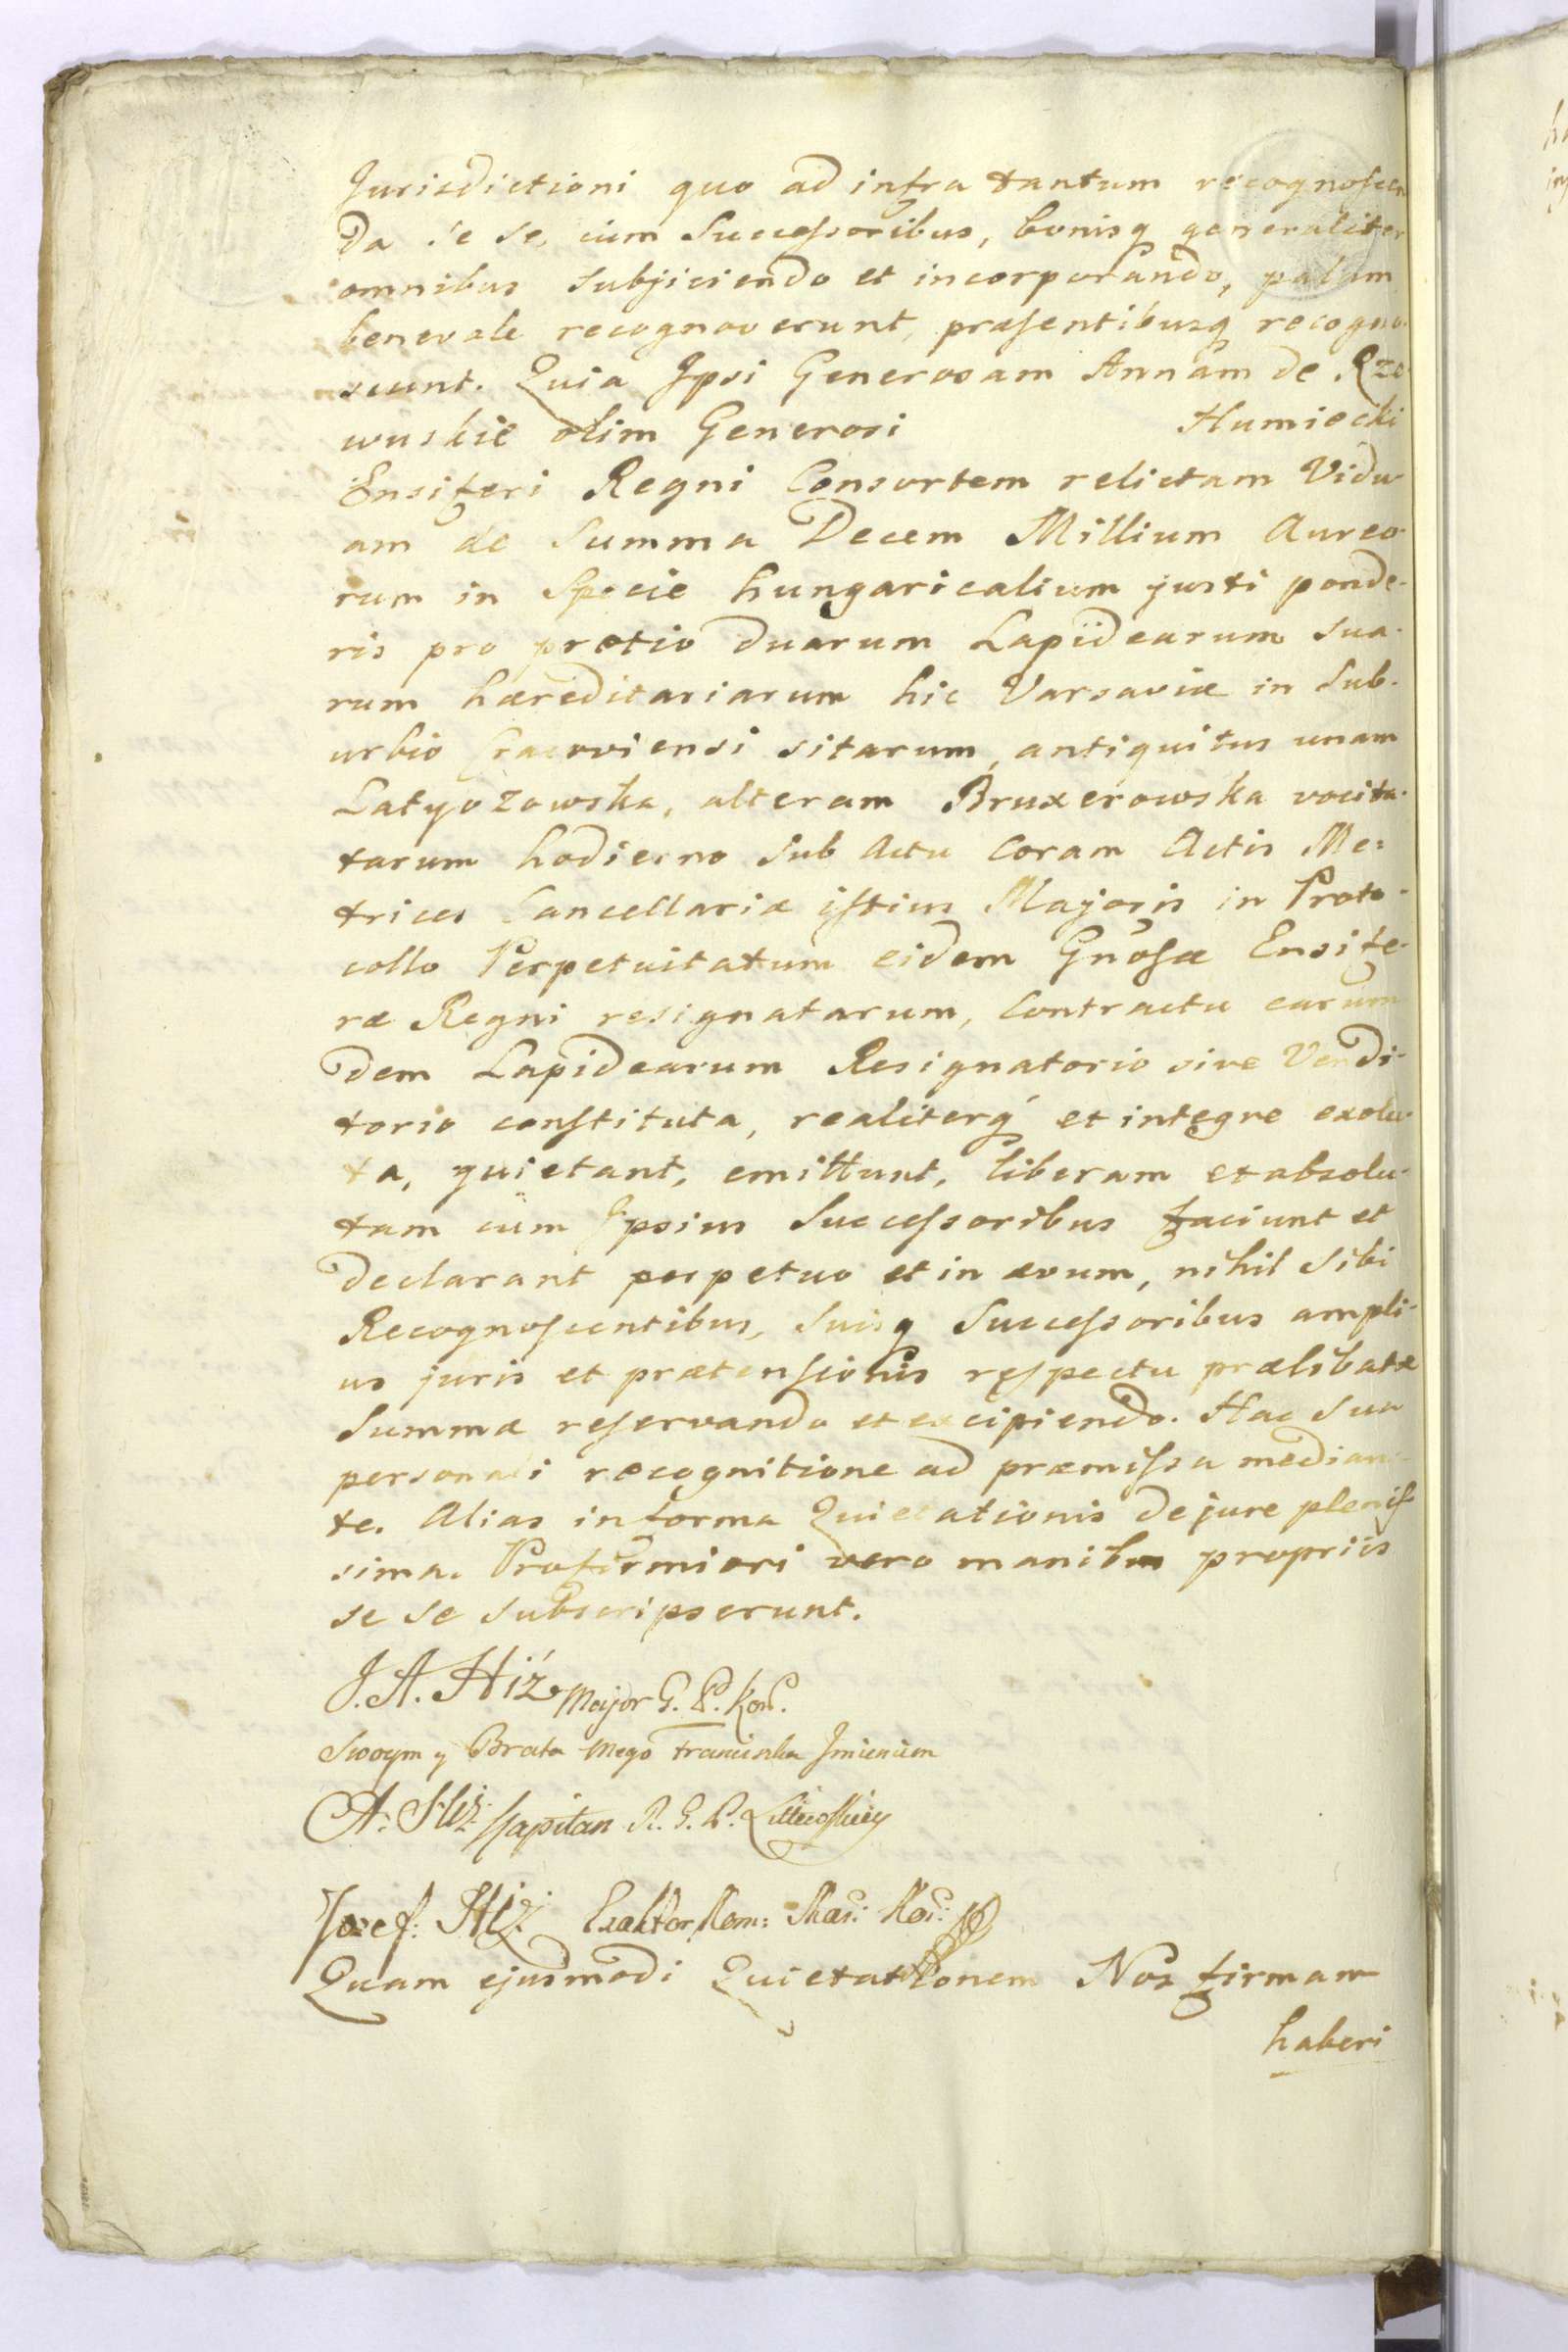 Jurisdictioni quo ad infra tantum recognoscen
da se se, cum Successoribus, bonisq generaliter
omnibus subjiciendo et incorporando, palam
benevole recognoverunt, præsentibusq recogno-
scunt. Quia Ipsi Generosam Annam de Rze-
wuskie olim Generosi Humiecki
Ensiferi Regni Consortem relictam Vidu-
am de Summa Decem Millium Aureo-
rum in Specie hungaricalium justi ponde-
ris pro pretio duarum Lapidearum sua-
rum hæreditariarum hic Varsaviæ in Sub-
urbio Cracoviensi sitarum, antiquitus unam
Latyozowska, alteram Bruxerowska vocita-
tarum hodierno sub Actu coram Actis Me-
trices Cancellariæ istius Majoris in Proto-
collo Perpetuitatum eidem Gnosæ Ensife-
ræ Regni resignatarum, Contractu earun
dem Lapidearum Resignatorio sive Vendi-
torio constituta, realiterq et integre exolu-
ta, quietant, emittunt, liberam et absolu-
tam cum Ipsius Successoribus faciunt et
declarant perpetuo et in ævum, nihil sibi
Recognoscentibus, Suisq Successoribus ampli-
us juris et prætensionis respectu prælibatæ
Summæ reservando et excipiendo. Hac sua
personali recognitione ad præmissa median-
te. Alias in forma Quietationis de jure plenis-
sima. Pro firmiori vero manibus propriis
se se subscripserunt.
J. A. Hiż Major G. P. Kor.
Swoym y Brata mego Franciszka Jmieniem
A: Hiż: Kapitan R. G. P. Littewskiey
Jozef: Hiż: Exaktor Kom: Skar: Kor:
Quam ejusmodi Quietationem Nos firmam
haberi